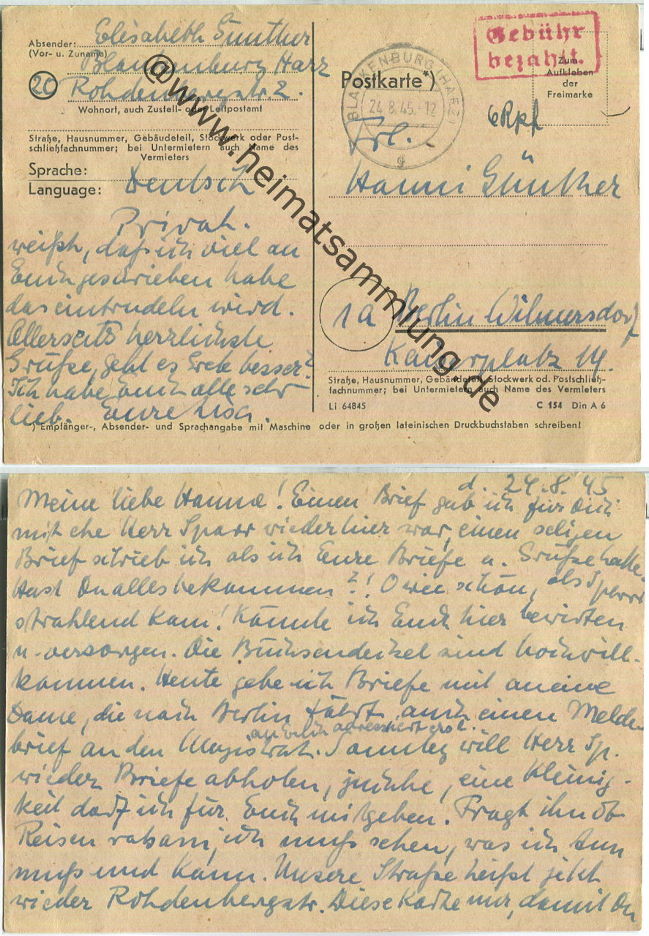 Absender: Elisabeth Günther
(Vor- u. Zuname)
Blankenburg Harz
20 Rohdenbergstr. 2.
Wohnort, auch Zustell- oder Leitpostamt
Straße, Hausnummer, Gebäudeteil, Stockwerk oder Post-
schließfachnummer; bei Untermietern auch Name des
Vermieters
Sprache:
Language: Deutsch
Privat.
weißt, daß ich viel an
Euch geschrieben habe
das eintrudeln wird.
Allerseits herrlichste
Grüße, geht es Ete besser?
Ich habe Euch alle sehr
lieb. Eure
Postkarte*)
BLANKENBURG (HARZ)
24.8.45.-12
g
Gebühr
bezahlt.
Zum
Aufkleben
der
Freimarke
6Rpf
Frl.
Hanni Günther
1a Berlin Wilmersdorf
Kaiserplatz 14.
Straße, Hausnummer, Gebäudeteil, Stockwerk od. Postschließ-
fachnummer; bei Untermietern auch Name des Vermieters
Li 64845 C 154 Din A 6
*) Empfänger-, Absender- und Sprachangabe mit Maschine oder in großen lateinischen Druckbuchstaben schreiben!
@www.heimatsammlung.de
d. 24.8.45
Meine liebe Hanne! Einen Brief gab ich für Dich
mit ehe Herr Sparr wieder hier war, einen seligen
Brief schrieb ich als ich Eure Briefe u. Grüße hatte.
Hast Du alles bekommen?! O wie schön, als Sparr
strahlend kam! Könnte ich Euch hier bewirten
u. versorgen. Die Büchsendeckel sind hochwill-
kommen. Heute gebe ich Briefe mit an eine
Dame, die nach Berlin fährt, auch einen Melde-
brief an den Magistrat. Sonntag will Herr Sp.
wieder Briefe abholen, eine Kleinig-
keit darf ich für Euch mitgeben. Fragt ihn ob
Reisen ratsam, ich muß sehen, was ich tun
muß und kann. Unsere Straße heißt jetzt
wieder Rohdenbergstr. Diese Karte nur, damit Du